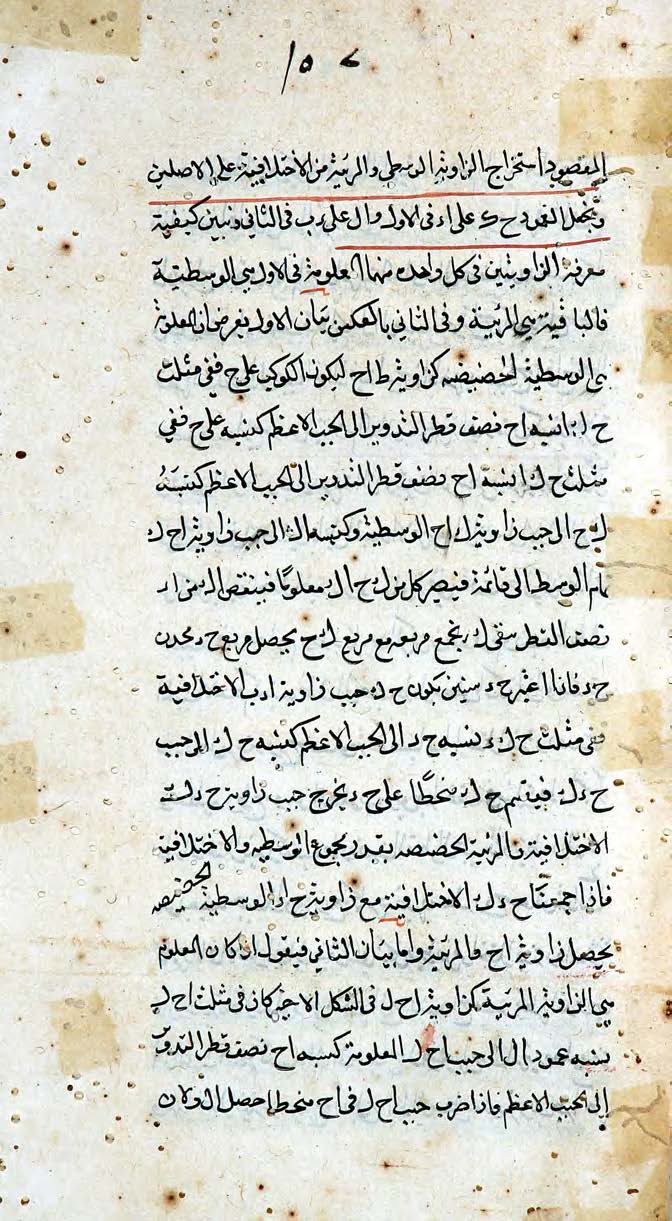 ١٥٧
المقصود استخراج الزاوية الوسطى والمرئية من الاختلافية على الاصلين
ونجعل العمود ح ك على ا ء فى الاول و ال على ب فى الثانى ونبين كيفية
معرفة الزاويتين فى كل واحده منهما المعلومة فى الاول هى الوسطية
فالباقية هى المرئية وفى الثانى بالعكس بيان الاول نفرض ان المعلومة
هى الوسطية الحضيضيه كزاوية ط ا ح ليكون الكوكب على ح ففى مثلث
ح ك ا نسبة ا ح نصف قطر التدوير الى الجيب الاعظم كنسبه على ح ففى
مثلث ح ك ا نسبة ا ح نصف قطر التدوير الى الجيب الاعظم كنسبة
ك ح الى جيب زاوية ك ا ح الوسطية وكنسبه ا ك الى جيب زاوية ا ح ك
تمام الوسط الى قائمة فيصير كل من ك ح ا ك معلومًا فينقص ا ك من ا ء
نصف القطر يبقى ك ء يجمع مربعه مع مربع ك ح يحصل مربع ح ء فجذره
ح ء فاذا اعتبر ح ء ستين يكون ح ك جيب زاوية ا ء ب الاختلافية
ففى مثلث ح ك ء نسبه ح ء الى الجيب الاعظم كنسبه ح ك الى جيب
ح ء ك فيقسم ح ك منحطًا على ح ء يخرج جيب زاوية ح ء ك
الاختلافية والمرئية الحضيضيه بقدر مجموع الوسطيه والاختلافية
فاذا جمعنا ح ء ك الاختلافية مع زاوية ح ا ء الوسطية الحضيضيه
يحصل زاوية ا ح والمرئية واما بيان الثانى فيقول اذ كان المعلوم
هى الزاوية المرئية كزاوية ا ح ل فى الشكل الاخير كان فى مثلث ا ح ل
نسبه عمود ا ل الى جيب ا ح ل المعلومة كنسبه ا ح نصف قطر التدوير
الى الجيب الاعظم فاذا ضرب جيب ا ح ل فى ا ح منحطا حصل ا ل ولان